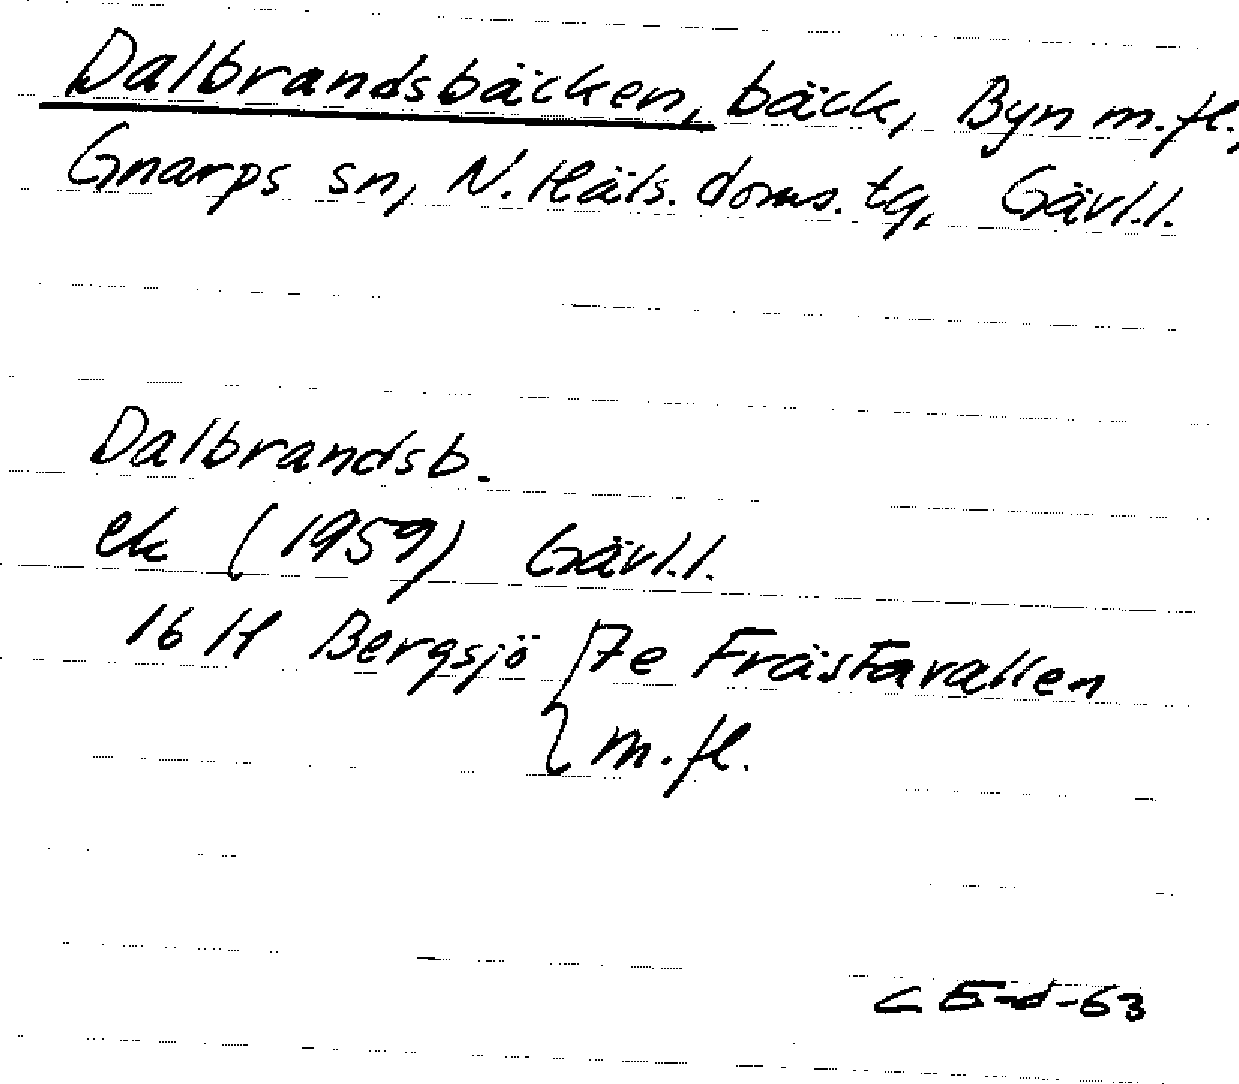 Dalbrandsbäcken, bäck, Byn m.fl.,
Gnarps sn, N. Häls. doms. tg, Gävl.l.
Dalbrandsb.
ek (1959) Gävl.l.
16 H Bergsjö 7e Frästavallen
m.fl.
-63